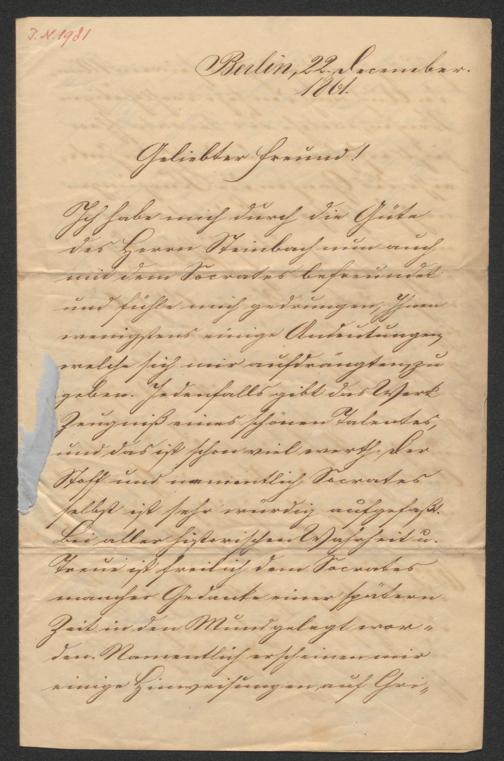 J.N. 1981
Berlin, 22. December.
1861.
Geliebter Freund!
Ich habe mich durch die Güte
des Herrn Steinbach nun auch
mit dem Socrates befreundet
und fühle mich gedrungen, Ihnen
wenigstens einige Andeutungen,
welche sich mir aufdrängten, zu
geben. Jedenfalls gibt das Werk
Zeugniß eines schönen Talentes,
und das ist schon viel werth. Der
Stoff und namentlich Socrates
selbst ist sehr würdig aufgefaßt.
Bei aller historischen Wahrheit u.
Treue ist freilich dem Socrates
mancher Gedanke einer spätern
Zeit in den Mund gelegt wor-
den. Namentlich erscheinen mir
einige Hinweisungen auf Chri-